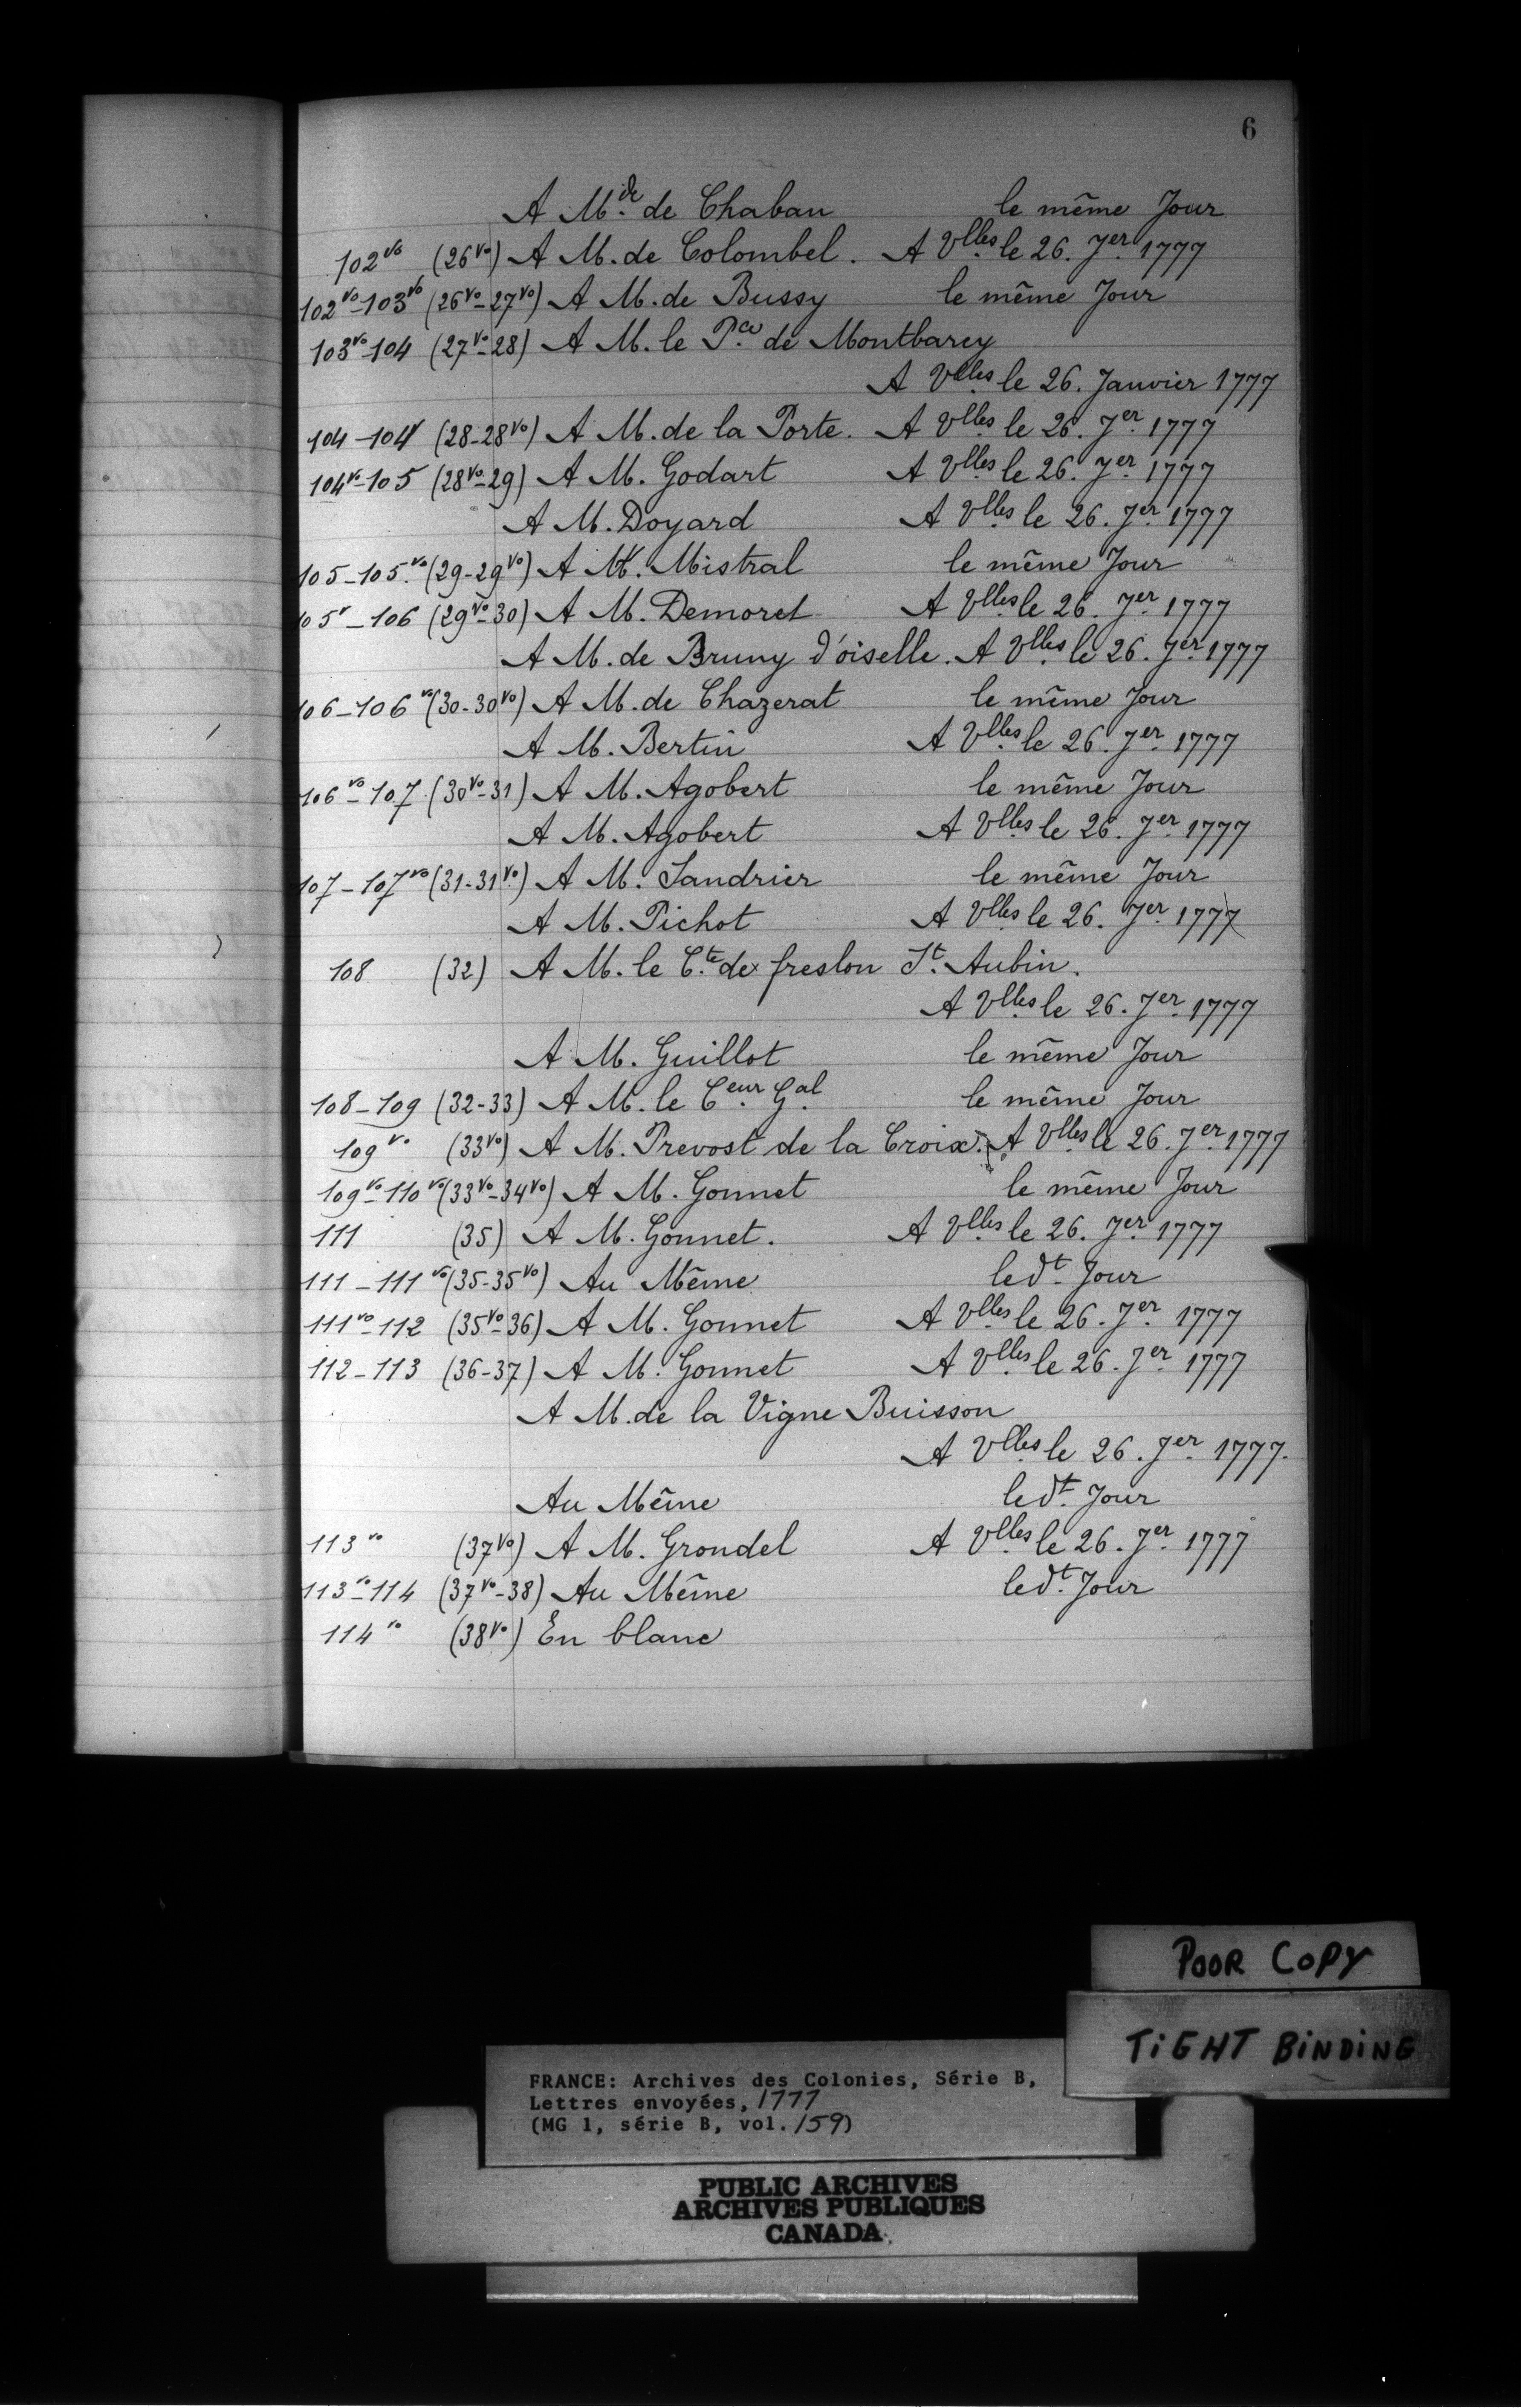 6
A M.de de Chaban le même Jour
102vo (26vo) A M. de Colombel. A Vlles le 26. Jer 1777
102vo-103vo (26vo-27vo) A M. de Bussy le même Jour
103vo-104 (27vo-28) A M. le P.ce de Montbarey
A Vlles le 26. Janvier 1777
104-104v (28-28vo) A M. de la Porte. A Vlles le 26. Jer 1777
104vo-105 (28vo-29) A M. Godart A Vlles le 26. Jer 1777
A M. Doyard A Vlles le 26. Jer 1777
105-105.vo (29-29vo) A M. Mistral le même Jour
105v-106 (29vo-30) A M. Demoret A Vlles le 26. Jer 1777
A M. de Bruny d'oiselle. A Vlles le 26. Jer 1777
106-106vo (30-30vo) A M. de Chazerat le même Jour
A M. Bertin A Vlles le 26. Jer 1777
106vo-107 (30vo-31) A M. Agobert le même Jour
A M. Agobert A Vlles le 26. Jer 1777
107-107vo (31-31vo) A M. Sandrier le même Jour
A M. Pichot A Vlles le 26. Jer 1777
108 (32) A M. le C.te de freslon St. Aubin.
A Vlles le 26. Jer 1777
A M. Guillot le même Jour
108-109 (32-33) A M. le C.eur G.al le même Jour
109vo (33vo) A M. Prevost de la Croix. A Vlles le 26. Jer 1777
109vo-110vo (33vo-34vo) A M. Gonnet le même Jour
111 (35) A M. Gonnet. A Vlles le 26. Jer 1777
111-111vo (35-35vo) Au Même led.t Jour
111vo-112 (35vo-36) A M. Gonnet A Vlles le 26. Jer 1777
112-113 (36-37) A M. Gonnet A Vlles le 26. Jer 1777
A M. de la Vigne Buisson
A Vlles le 26. Jer 1777.
Au Même led.t Jour
113vo (37vo) A M. Grondel A Vlles le 26. Jer 1777
113vo-114 (37vo-38) Au Même led.t Jour
114vo (38vo) En blanc
POOR COPY
TIGHT BINDING
FRANCE: Archives des Colonies, Série B,
Lettres envoyées, 1777
(MG 1, série B, vol. 159)
PUBLIC ARCHIVES
ARCHIVES PUBLIQUES
CANADA